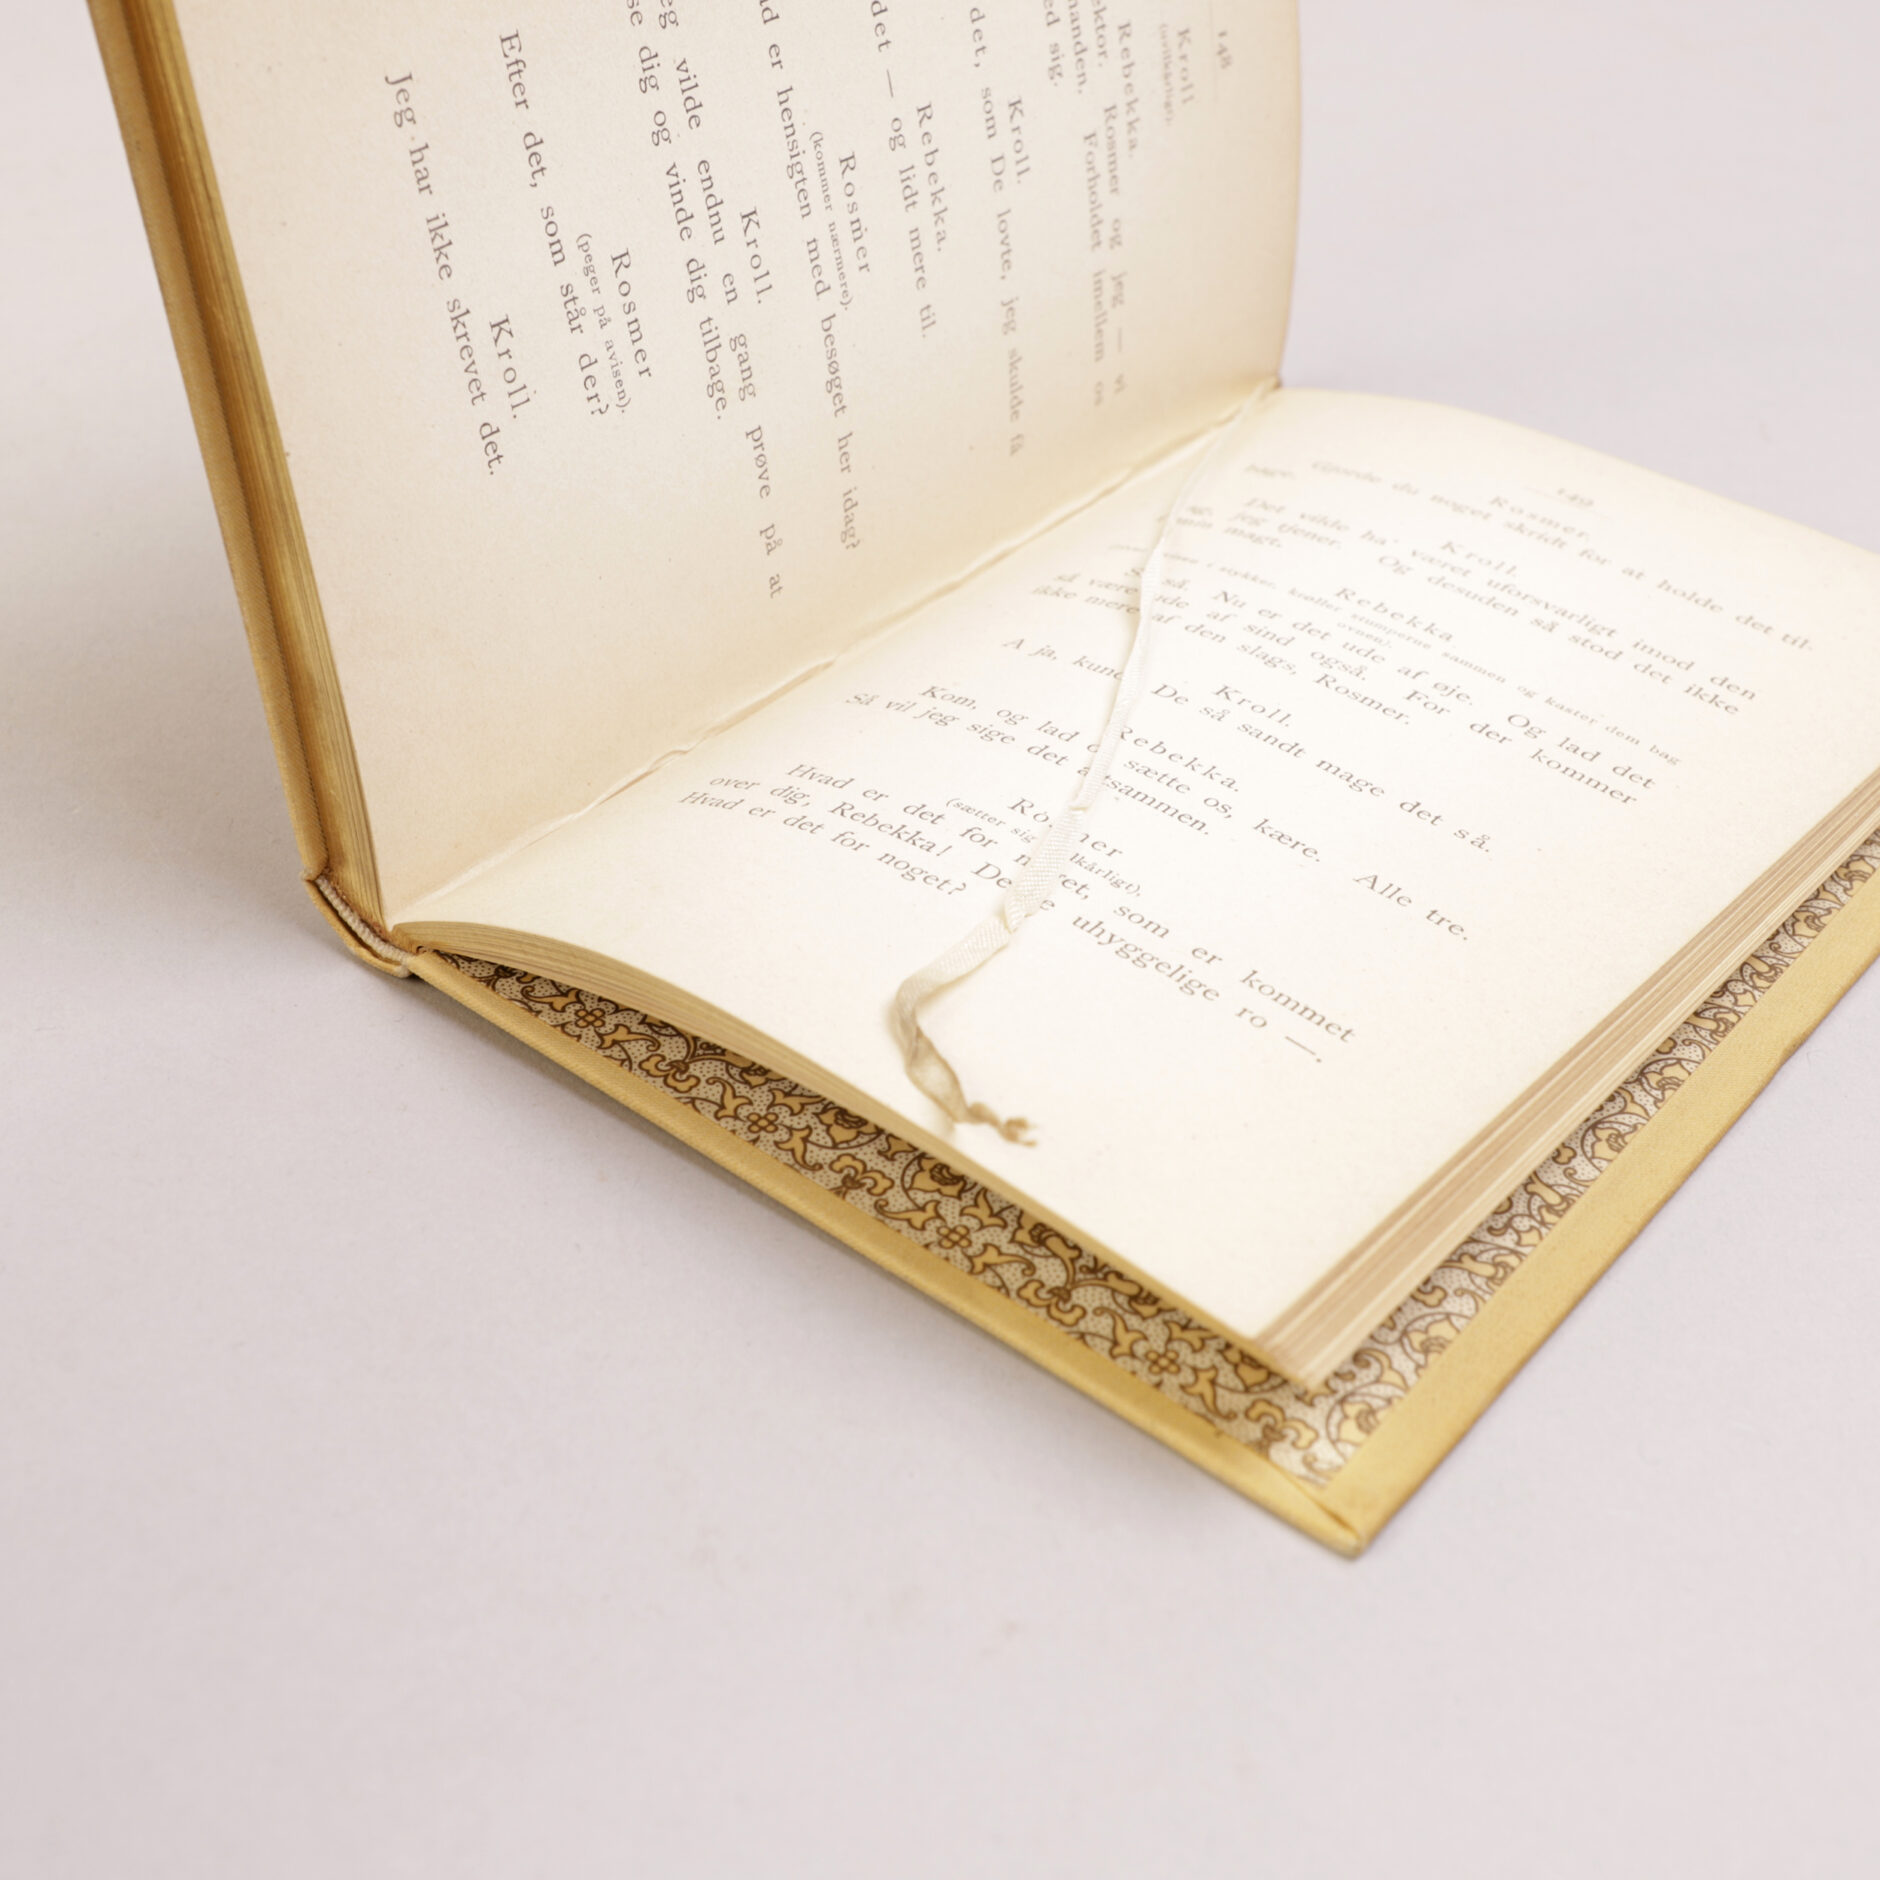 148
Kroll
(uvilkårligt).
Rebekka.
Rosmer og jeg — vi
Forholdet imellem os
ed sig.
Kroll.
det, som De lovte, jeg skulde få
Rebekka.
det — og lidt mere til.
Rosmer
(kommer nærmere).
er hensigten med besøget her idag?
Kroll.
vilde endnu en gang prøve på at
dig og vinde dig tilbage.
Rosmer
(peger på avisen).
Efter det, som står der?
Kroll.
Jeg har ikke skrevet det.
149
Rosmer.
Gjorde du noget skridt for at holde det til-
bage.
Kroll.
Det vilde ha' været uforsvarligt imod den
sag, jeg tjener. Og desuden så stod det ikke
i min magt.
Rebekka
i stykker, krøller stumperne sammen og kaster dem bag
ovnen).
så. Nu er det ude af øje. Og lad det
så være ude af sind også. For der kommer
ikke mere af den slags, Rosmer.
Kroll.
A ja, kunde De så sandt mage det så.
Rebekka.
Kom, og lad os sætte os, kære. Alle tre.
Så vil jeg sige det altsammen.
Rosmer
(sætter sig uvilkårligt).
Hvad er det for noget, som er kommet
over dig, Rebekka! Denne uhyggelige ro —.
Hvad er det for noget?